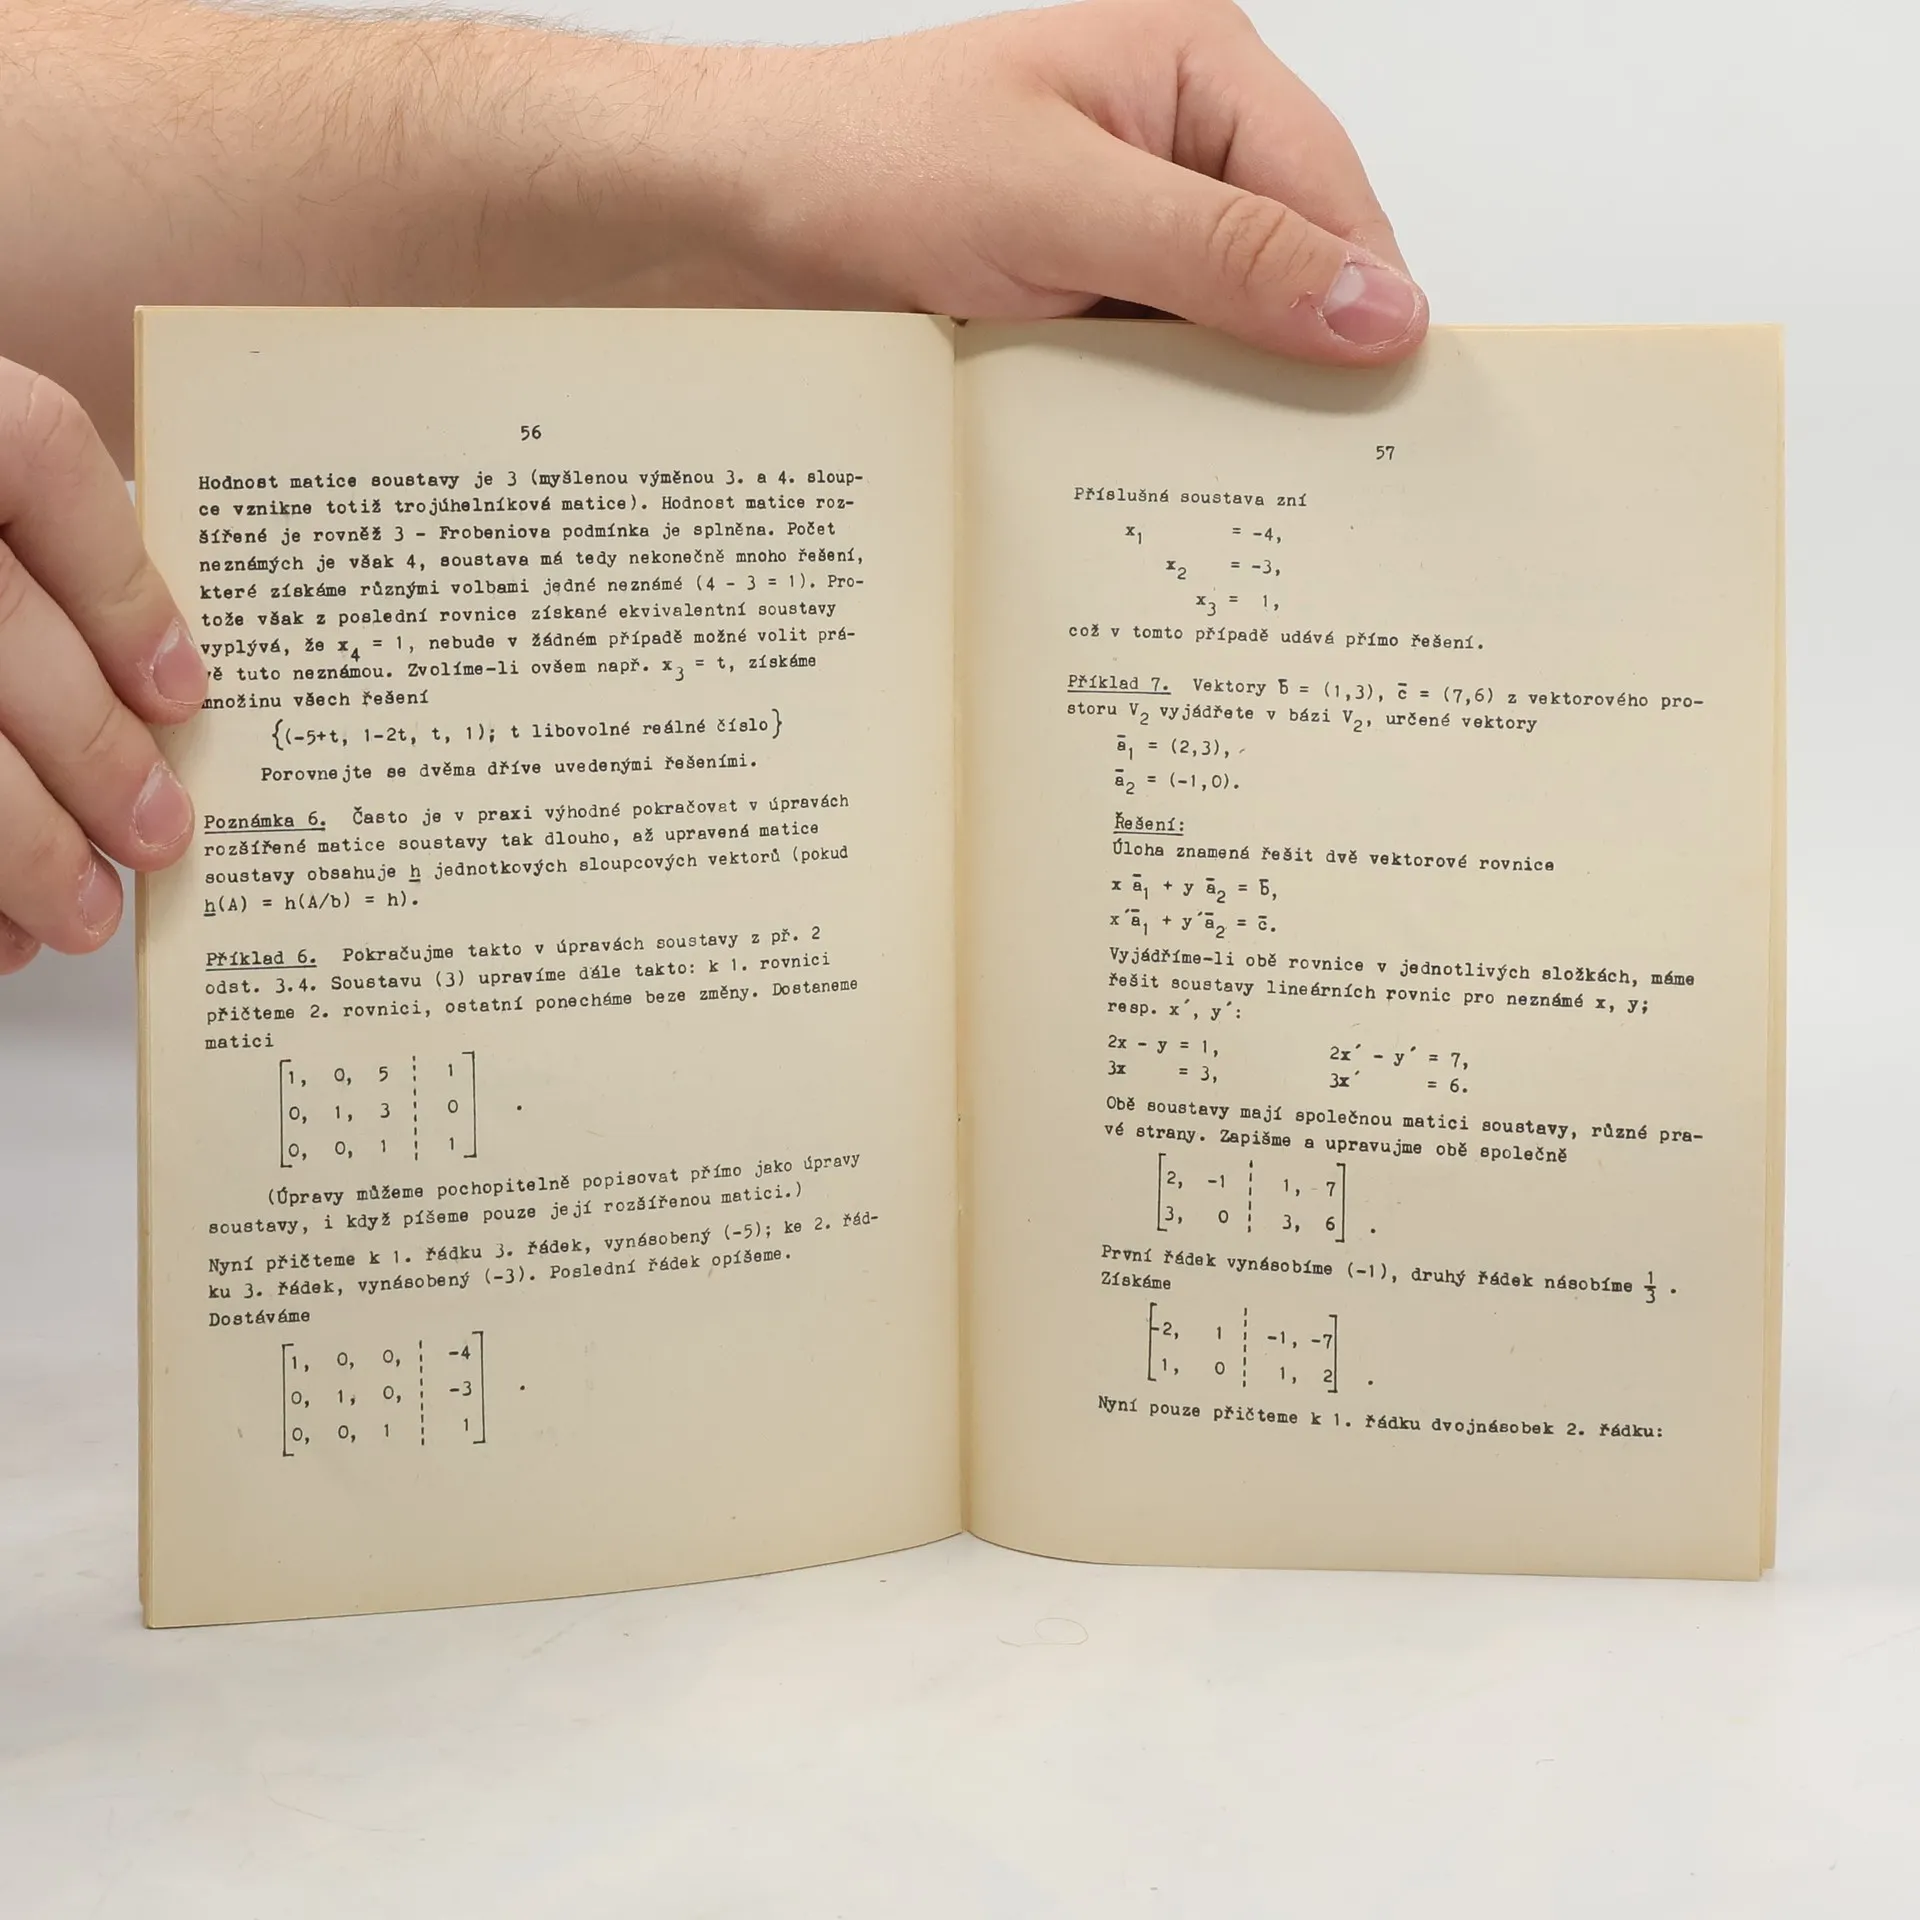 56
Hodnost matice soustavy je 3 (myšlenou výměnou 3. a 4. sloup-
ce vznikne totiž trojúhelníková matice). Hodnost matice roz-
šířené je rovněž 3 - Frobeniova podmínka je splněna. Počet
neznámých je však 4, soustava má tedy nekonečně mnoho řešení,
které získáme různými volbami jedné neznámé (4 - 3 = 1). Pro-
tože však z poslední rovnice získané ekvivalentní soustavy
vyplývá, že x₄ = 1, nebude v žádném případě možné volit prá-
vě tuto neznámou. Zvolíme-li ovšem např. x₃ = t, získáme
množinu všech řešení
{(-5+t, 1-2t, t, 1); t libovolné reálné číslo}
Porovnejte se dvěma dříve uvedenými řešeními.
Poznámka 6. Často je v praxi výhodné pokračovat v úpravách
rozšířené matice soustavy tak dlouho, až upravená matice
soustavy obsahuje h jednotkových sloupcových vektorů (pokud
h(A) = h(A/b) = h).
Příklad 6. Pokračujme takto v úpravách soustavy z př. 2
odst. 3.4. Soustavu (3) upravíme dále takto: k 1. rovnici
přičteme 2. rovnici, ostatní ponecháme beze změny. Dostaneme
matici
1, 0, 5 ¦ 1
0, 1, 3 ¦ 0 .
0, 0, 1 ¦ 1
(Úpravy můžeme pochopitelně popisovat přímo jako úpravy
soustavy, i když píšeme pouze její rozšířenou matici.)
Nyní přičteme k 1. řádku 3. řádek, vynásobený (-5); ke 2. řád-
ku 3. řádek, vynásobený (-3). Poslední řádek opíšeme.
Dostáváme
1, 0, 0, ¦ -4
0, 1, 0, ¦ -3 .
0, 0, 1 ¦ 1
57
Příslušná soustava zní
x₁ = -4,
x₂ = -3,
x₃ = 1,
což v tomto případě udává přímo řešení.
Příklad 7. Vektory b̄ = (1,3), c̄ = (7,6) z vektorového pro-
storu V₂ vyjádřete v bázi V₂, určené vektory
ā₁ = (2,3),
ā₂ = (-1,0).
Řešení:
Úloha znamená řešit dvě vektorové rovnice
x ā₁ + y ā₂ = b̄,
x´ā₁ + y´ā₂ = c̄.
Vyjádříme-li obě rovnice v jednotlivých složkách, máme
řešit soustavy lineárních rovnic pro neznámé x, y;
resp. x´, y´:
2x - y = 1, 2x´ - y´ = 7,
3x = 3, 3x´ = 6.
Obě soustavy mají společnou matici soustavy, různé pra-
vé strany. Zapišme a upravujme obě společně
2, -1 ¦ 1, 7
3, 0 ¦ 3, 6 .
První řádek vynásobíme (-1), druhý řádek násobíme 1/3 .
Získáme
-2, 1 ¦ -1, -7
1, 0 ¦ 1, 2 .
Nyní pouze přičteme k 1. řádku dvojnásobek 2. řádku: